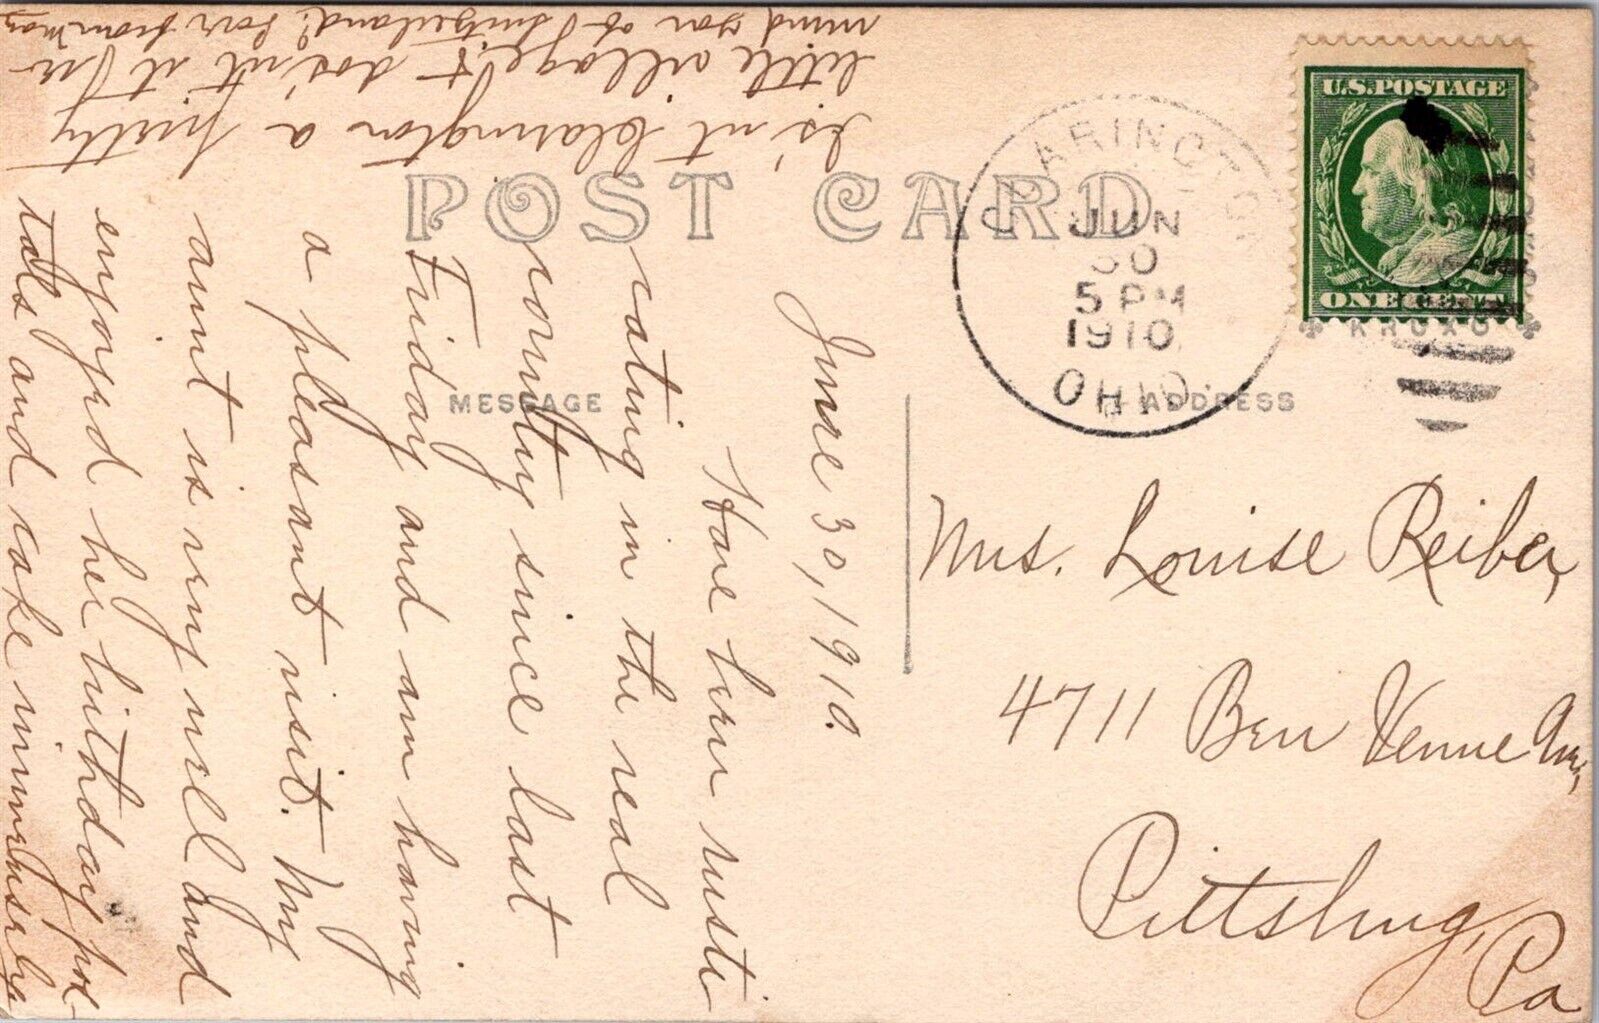 POST CARD
MESSAGE
ADDRESS
U.S. POSTAGE
ONE CENT
KRUXO
CLARINGTON
JUN
30
5 PM
1910
OHIO.
Mrs. Louise Reiber,
4711 Ben Venue Ave,
Pittsburg, Pa
June 30, 1910.
Have been rusti
cating in the real
country since last
Friday and am having
a pleasant visit. My
aunt is very well and
enjoyed her birthday pos-
tals and cake immensely
Is'nt Clarington a pretty
little village & dos'nt it re-
mind you of Switzerland?